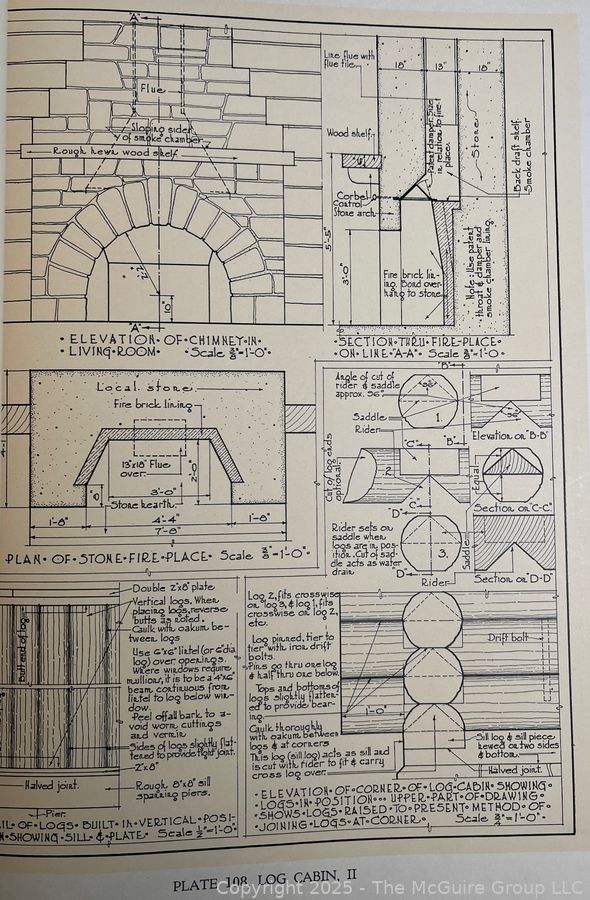 "A"
Flue
Sloping sides
of smoke chamber
Rough hewn wood shelf
2'2"
10"
"A"
• ELEVATION • OF • CHIMNEY • IN •
• LIVING • ROOM • Scale 3/8"=1'-0" •
Line flue with
flue tile
18"
13"
18"
Wood shelf
Patent damper. Size
in relation to fire-
place
Stone
Back draft shelf
Smoke chamber
Corbel
Control
Stone arch
5'-5"
3'-0"
Fire brick lin-
ing. Bond over-
hang to stone
Note: Use patent
throat & damper and
smoke chamber lining
• SECTION • THRU • FIRE-PLACE
ON • LINE • "A-A" • Scale 3/8"=1'-0" •
Local stone
Fire brick lining
13"x18" Flue
over
2'-0"
3'-0"
Stone hearth
1'-8"
4'-4"
1'-8"
7'-8"
PLAN • OF • STONE • FIRE • PLACE • Scale 3/8"=1'-0" •
Angle of cut of
rider & saddle
approx. 96°
"B"
96°
1.
Saddle
Rider
"B"
96°
Elevation on "B-B"
Cut of log ends
optional
"C"
2.
"C"
Equal
Section on "C-C"
Rider sets on
saddle when
logs are in pos-
ition. Cut of sad-
dle acts as water
drain
"D"
3.
"D"
Rider
Saddle
Section on "D-D"
Butt end of log
Double 2"x8" plate
Vertical logs. When
placing logs, reverse
butts as noted.
Caulk with oakum be-
tween logs
Use 6"x6" lintel (or 6" dia.
log) over openings.
Where windows require
mullions, it is to be a 4"x6"
beam continuous from
lintel to log below win-
dow.
Peel off all bark to a-
void worm cuttings
and vermin
Sides of logs slightly flat-
tened to provide tight joint.
2"x8"
Halved joint.
Rough 8"x8" sill
spanning piers.
Pier
IL • OF • LOGS • BUILT • IN • VERTICAL • POSI-
N • SHOWING • SILL • & • PLATE • Scale 1/2"=1'-0" •
Log 2, fits crosswise
on log 3, & log 1, fits
crosswise on log 2,
etc.
Log pinned, tier to
tier with iron drift
bolts.
Pins go thru one log
& half thru one below.
Tops and bottoms
of logs slightly flatten-
ed to provide bear-
ing.
1'-0"
Caulk thoroughly
with oakum between
logs & at corners
This log (sill log) acts as sill and
is cut with rider to fit & carry
cross log over.
Drift bolt
Sill log & sill piece
hewed on two sides
& bottom.
Halved joint.
• ELEVATION • OF • CORNER • OF • LOG • CABIN • SHOWING •
• LOGS • IN • POSITION • • • UPPER • PART • OF • DRAWING •
• SHOWS • LOGS • RAISED • TO • PRESENT • METHOD • OF •
• JOINING • LOGS • AT • CORNER • Scale 3/4"=1'-0" •
PLATE 108. LOG CABIN, II
Copyright 2025 - The McGuire Group LLC